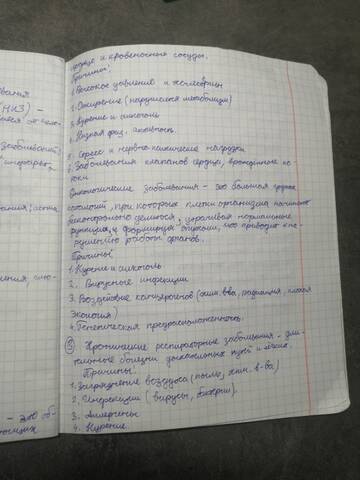 сердце и кровеносные сосуды.
Причины:
1. Высокое давление и холестерин
2. Ожирение (нарушается метаболизм)
3. Курение и алкоголь
4. Низкая физ. активность.
5. Стресс и нервно-психические нагрузки
6. Заболевания клапанов сердца, врожденные по-
роки
Онкологические заболевания - это большая группа
патологий, при которых клетки организма начинают
бесконтрольно делиться, утрачивая нормальные
функции и формируя опухоли, что приводит к на-
рушению работы органов.
Причины:
1. Курение и алкоголь
2. Вирусные инфекции
3. Воздействие канцерогенов (хим. в-ва, радиация, плохая
экология)
4. Генетическая предрасположенность.
③ Хронические респираторные заболевания - дли-
тельные болезни дыхательных путей и лёгких.
Причины:
1. Загрязнение воздуха (пыль, хим. в-ва)
2. Инфекции (вирусы, бактерии).
3. Аллергены
4. Курение
(НИЗ) -
заболеваний
- это об-